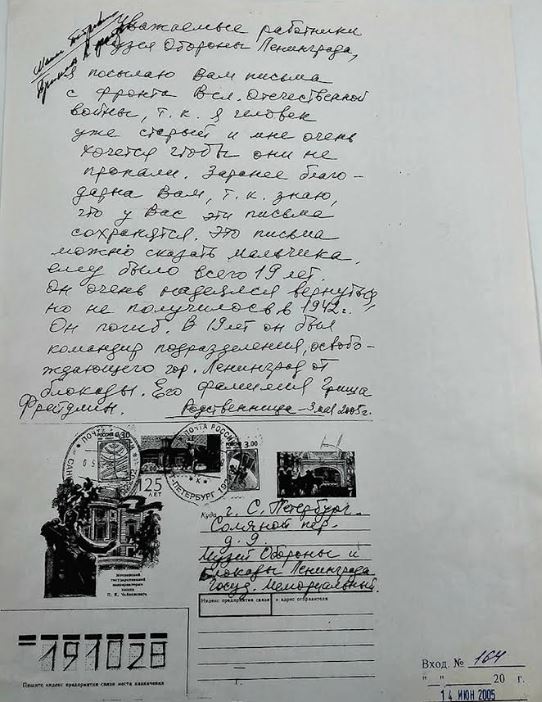 Уважаемые работники
Музея Обороны Ленинграда,
я посылаю Вам письма
с фронта Вел. Отечественной
войны, т. к. я человек
уже старый и мне очень
хочется чтобы они не
пропали. Заранее благо-
дарна Вам, т. к. знаю,
что у Вас эти письма
сохранятся. Это письма
можно сказать мальчика,
ему было всего 19 лет.
Он очень надеялся вернуться,
но не получилось в 1942 г.
Он погиб. В 19 лет он был
командир подразделения, освобо-
ждающего гор. Ленинград от
блокады. Его фамилия Гриша
Фрейдлин.
Родственница - 3 мая 2005г.
ПОЧТА РОССИИ
3.00
125
ЛЕТ
Московская
государственная
консерватория
имени
П. И. Чайковского
Куда г. С. Петербург
Соляной пер.
д. 9.
Музей Обороны и
Блокады Ленинграда
Госуд. Мемориальный.
Индекс предприятия связи и адрес отправителя
191028
Пишите индекс предприятия связи места назначения
Вход. № 164
" " 20 г.
14 ИЮН 2005